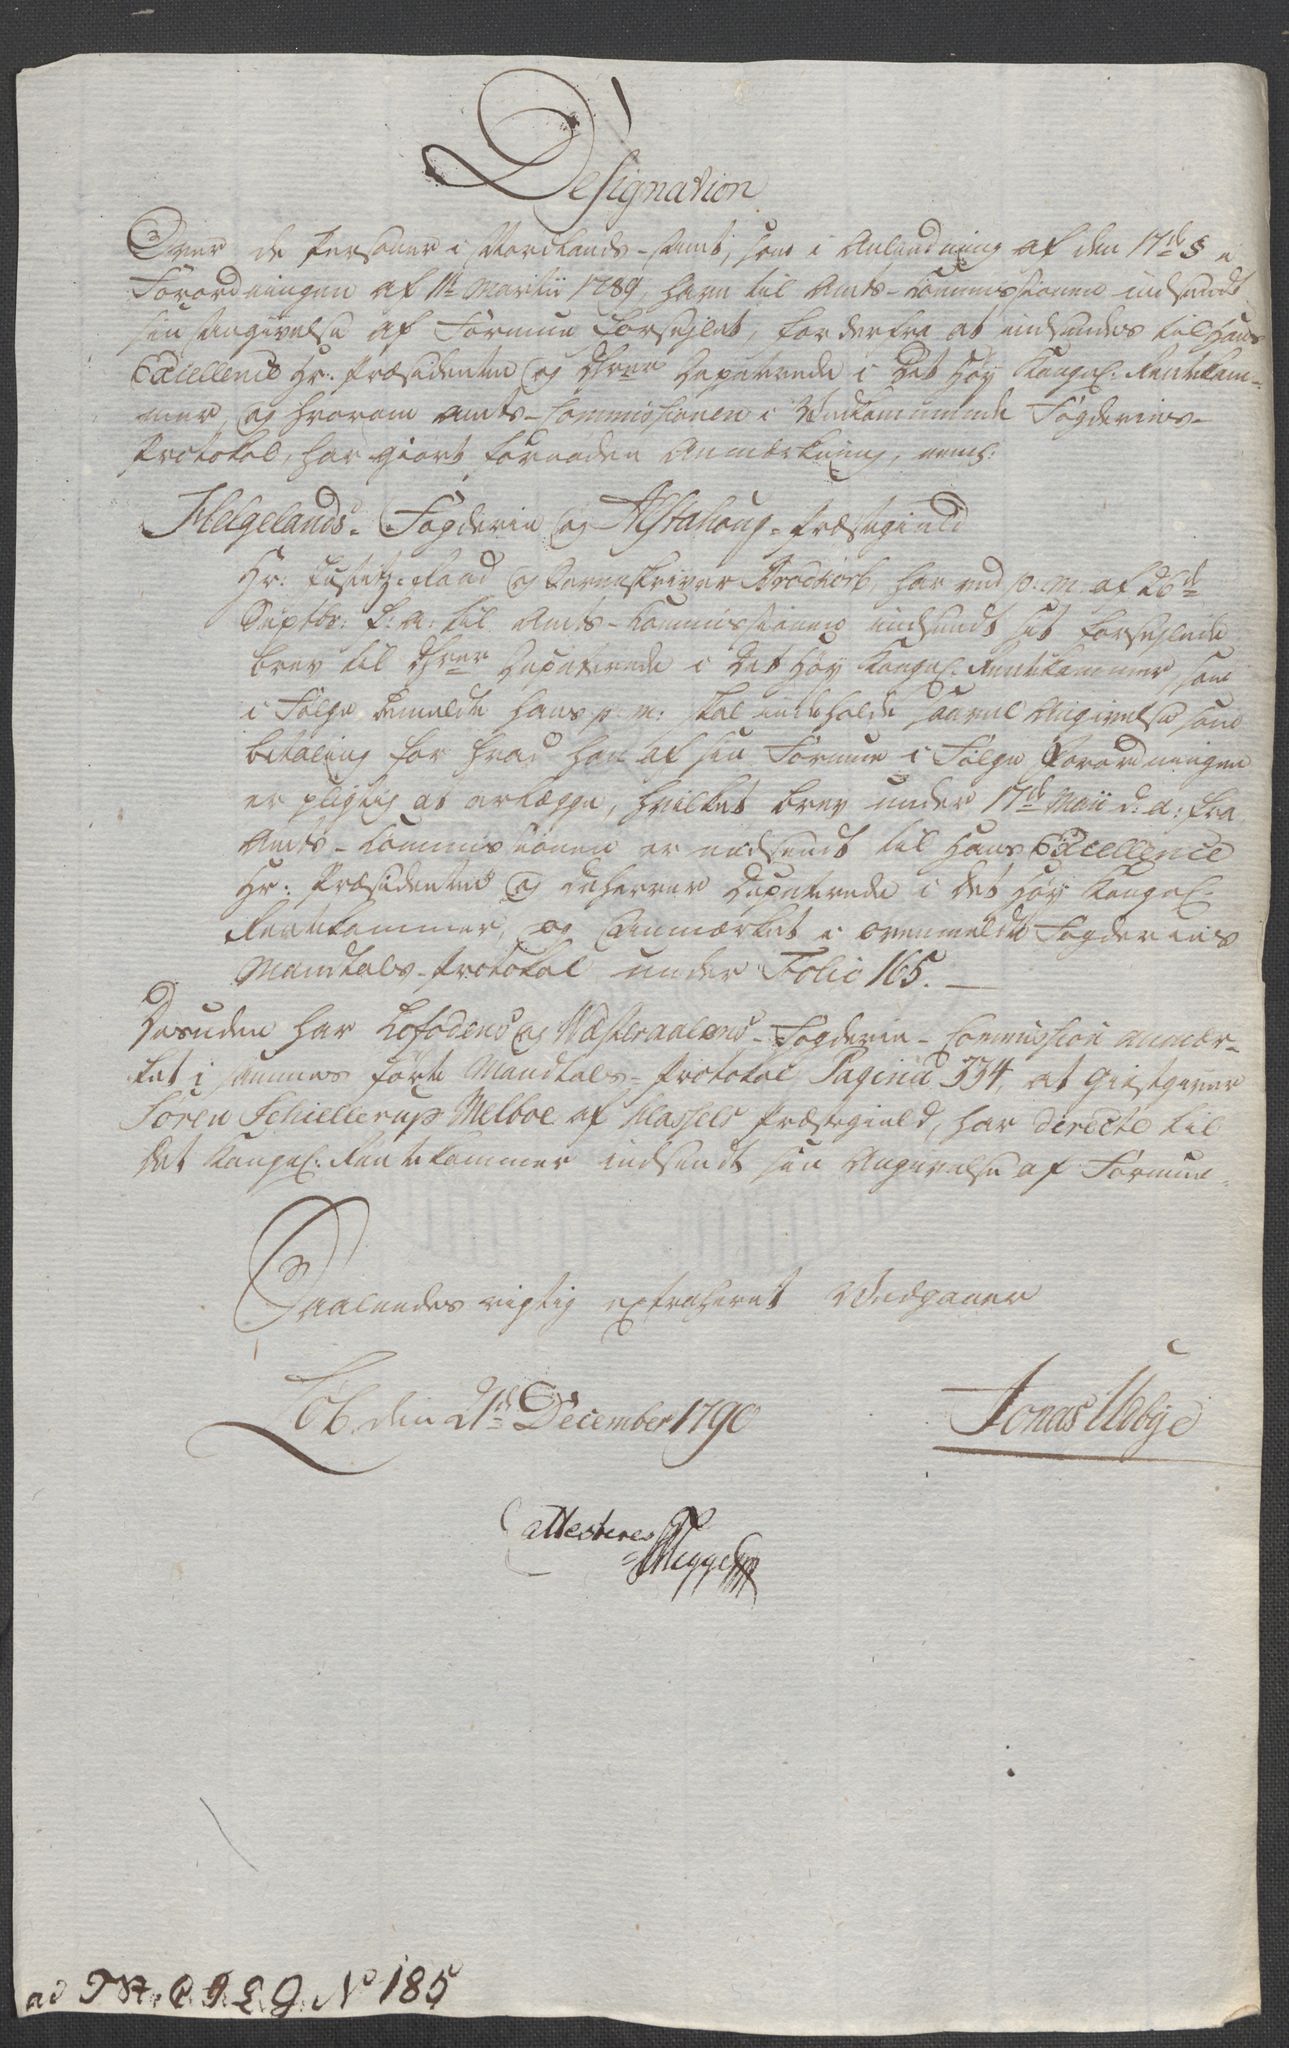 Designation
Over de Personer i Nordlands-Amt, som i Anledning af den 17de § i
Forordningen af 11te Martii 1789, have til Amts-Commissionen indsendt
sin Angivelse af Formue forseglet, for derfra at indsendes til Hans
Excellence Hr: Præsidenten og Dhrer Deputerede i Det Høy Kongel. Rentekam-
mer, og hvorom Amts-Commissionen i Vedkommende Fogderies-
Protokol, har giort saadan Anmærkning, neml:
Helgelands-Fogderie og Alstahoug-Præstegield
Hr: Justitz-Raad og Sorenskriver Brodkorb, har ved p. m. af 26de
Septbr: f: a: til Amts-Commissionen indsendt sit forseglede
brev til Dhrer Deputerede i Det Høy Kongel. Rentekammer, som
i Følge bemelde hans p. m: skal indeholde saavel Angivelse som
betaling for hvad han af sin Formue i Følge Forordningen
er pligtig at erlægge, hvilket brev under 17de Maii d: a: fra
Amts-Commissionen er indsendt til Hans Excellence
Hr: Præsidenten og de Herrer Deputerede i Det Høy Kongel.
Rentekammer, og Anmærket i ovenmeldte Fogderies
Mandtals-Protokol under Folio 165.
Desuden har Lofodens og Vesteraalens-Fogderie-Commission anmær-
ket i sammes førte Mandtals-Protokol Pagina 334, at Giestgiver
Søren Schiellerup Melboe af Hassels Præstegield, har directe til
det Kongel: Rentekammer indsendt sin Angivelse af Formue.
Saaledes rigtig extraheret Vedgaaer
Løb. den 21de December 1790 Jonas Ulbye
attesteres
ad No 185